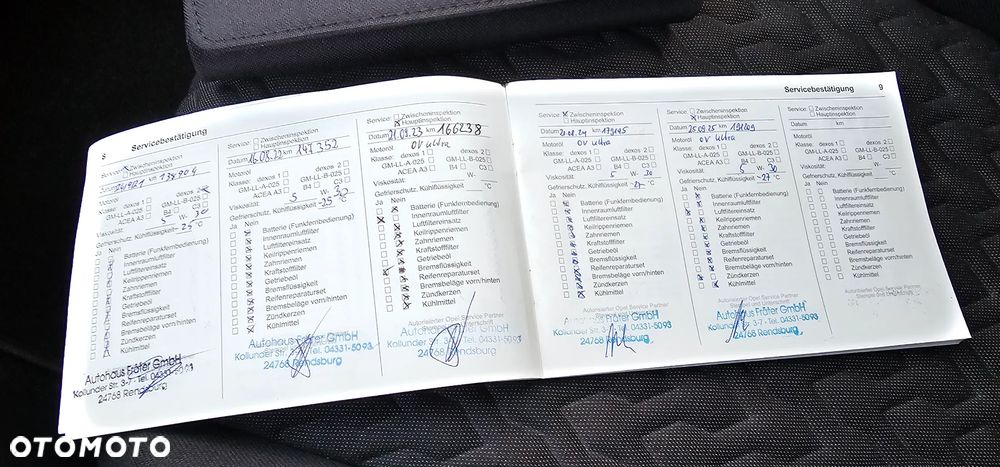 8 Servicebestätigung
Service: Zwischeninspektion
Hauptinspektion
Datum km
Motoröl
Klasse: dexos 1 dexos 2
GM-LL-A-025 GM-LL-B-025
ACEA A3 B4 C3
Viskosität 5 W- 30
Gefrierschutz, Kühlflüssigkeit -25 °C
Ja Nein
Batterie (Funkfernbedienung)
Innenraumluftfilter
Luftfiltereinsatz
Keilrippenriemen
Zahnriemen
Kraftstofffilter
Getriebeöl
Bremsflüssigkeit
Reifenreparaturset
Bremsbeläge vorn/hinten
Zündkerzen
Kühlmittel
Autohaus Fräter GmbH
Kollunder Str. 3-7 - Tel. 04331-5093
24768 Rendsburg
Service: Zwischeninspektion
Hauptinspektion
Datum 16.08.22 km 147 352
Motoröl
Klasse: dexos 1 dexos 2
GM-LL-A-025 GM-LL-B-025
ACEA A3 B4 C3
Viskosität 5 W- 30
Gefrierschutz, Kühlflüssigkeit -25 °C
Ja Nein
Batterie (Funkfernbedienung)
Innenraumluftfilter
Luftfiltereinsatz
Keilrippenriemen
Zahnriemen
Kraftstofffilter
Getriebeöl
Bremsflüssigkeit
Reifenreparaturset
Bremsbeläge vorn/hinten
Zündkerzen
Kühlmittel
Autohaus Fräter GmbH
Kollunder Str. 3-7 - Tel. 04331-5093
24768 Rendsburg
Service: Zwischeninspektion
Hauptinspektion
Datum 21.09.23 km 166238
Motoröl OV Ultra
Klasse: dexos 1 dexos 2
GM-LL-A-025 GM-LL-B-025
ACEA A3 B4 C3
Viskosität: W-
Gefrierschutz, Kühlflüssigkeit °C
Ja Nein
Batterie (Funkfernbedienung)
Innenraumluftfilter
Luftfiltereinsatz
Keilrippenriemen
Zahnriemen
Kraftstofffilter
Getriebeöl
Bremsflüssigkeit
Reifenreparaturset
Bremsbeläge vorn/hinten
Zündkerzen
Kühlmittel
Autorisierter Opel Service Partner
Autohaus Fräter GmbH
Kollunder Str. 3-7 - Tel. 04331-5093
24768 Rendsburg
Servicebestätigung 9
Service: Zwischeninspektion
Hauptinspektion
Datum km
Motoröl OV Ultra
Klasse: dexos 1 dexos 2
GM-LL-A-025 GM-LL-B-025
ACEA A3 B4 C3
Viskosität: 5 W- 30
Gefrierschutz, Kühlflüssigkeit -27 °C
Ja Nein
Batterie (Funkfernbedienung)
Innenraumluftfilter
Luftfiltereinsatz
Keilrippenriemen
Zahnriemen
Kraftstofffilter
Getriebeöl
Bremsflüssigkeit
Reifenreparaturset
Bremsbeläge vorn/hinten
Zündkerzen
Kühlmittel
Autorisierter Opel Service Partner
Stempel und Unterschrift
Autohaus Fräter GmbH
Kollunder Str. 3-7 - Tel. 04331-5093
24768 Rendsburg
Service: Zwischeninspektion
Hauptinspektion
Datum 25.09.25 km
Motoröl OV Ultra
Klasse: dexos 1 dexos 2
GM-LL-A-025 GM-LL-B-025
ACEA A3 B4 C3
Viskosität: 5 W- 30
Gefrierschutz, Kühlflüssigkeit -27 °C
Ja Nein
Batterie (Funkfernbedienung)
Innenraumluftfilter
Luftfiltereinsatz
Keilrippenriemen
Zahnriemen
Kraftstofffilter
Getriebeöl
Bremsflüssigkeit
Reifenreparaturset
Bremsbeläge vorn/hinten
Zündkerzen
Kühlmittel
Autorisierter Opel Service Partner
Stempel und Unterschrift
Autohaus Fräter GmbH
Kollunder Str. 3-7 - Tel. 04331-5093
24768 Rendsburg
Service: Zwischeninspektion
Hauptinspektion
Datum km
Motoröl
Klasse: dexos 1 dexos 2
GM-LL-A-025 GM-LL-B-025
ACEA A3 B4 C3
Viskosität: W-
Gefrierschutz, Kühlflüssigkeit °C
Ja Nein
Batterie (Funkfernbedienung)
Innenraumluftfilter
Luftfiltereinsatz
Keilrippenriemen
Zahnriemen
Kraftstofffilter
Getriebeöl
Bremsflüssigkeit
Reifenreparaturset
Bremsbeläge vorn/hinten
Zündkerzen
Kühlmittel
Autorisierter Opel Service Partner
Stempel und Unterschrift
OTOMOTO